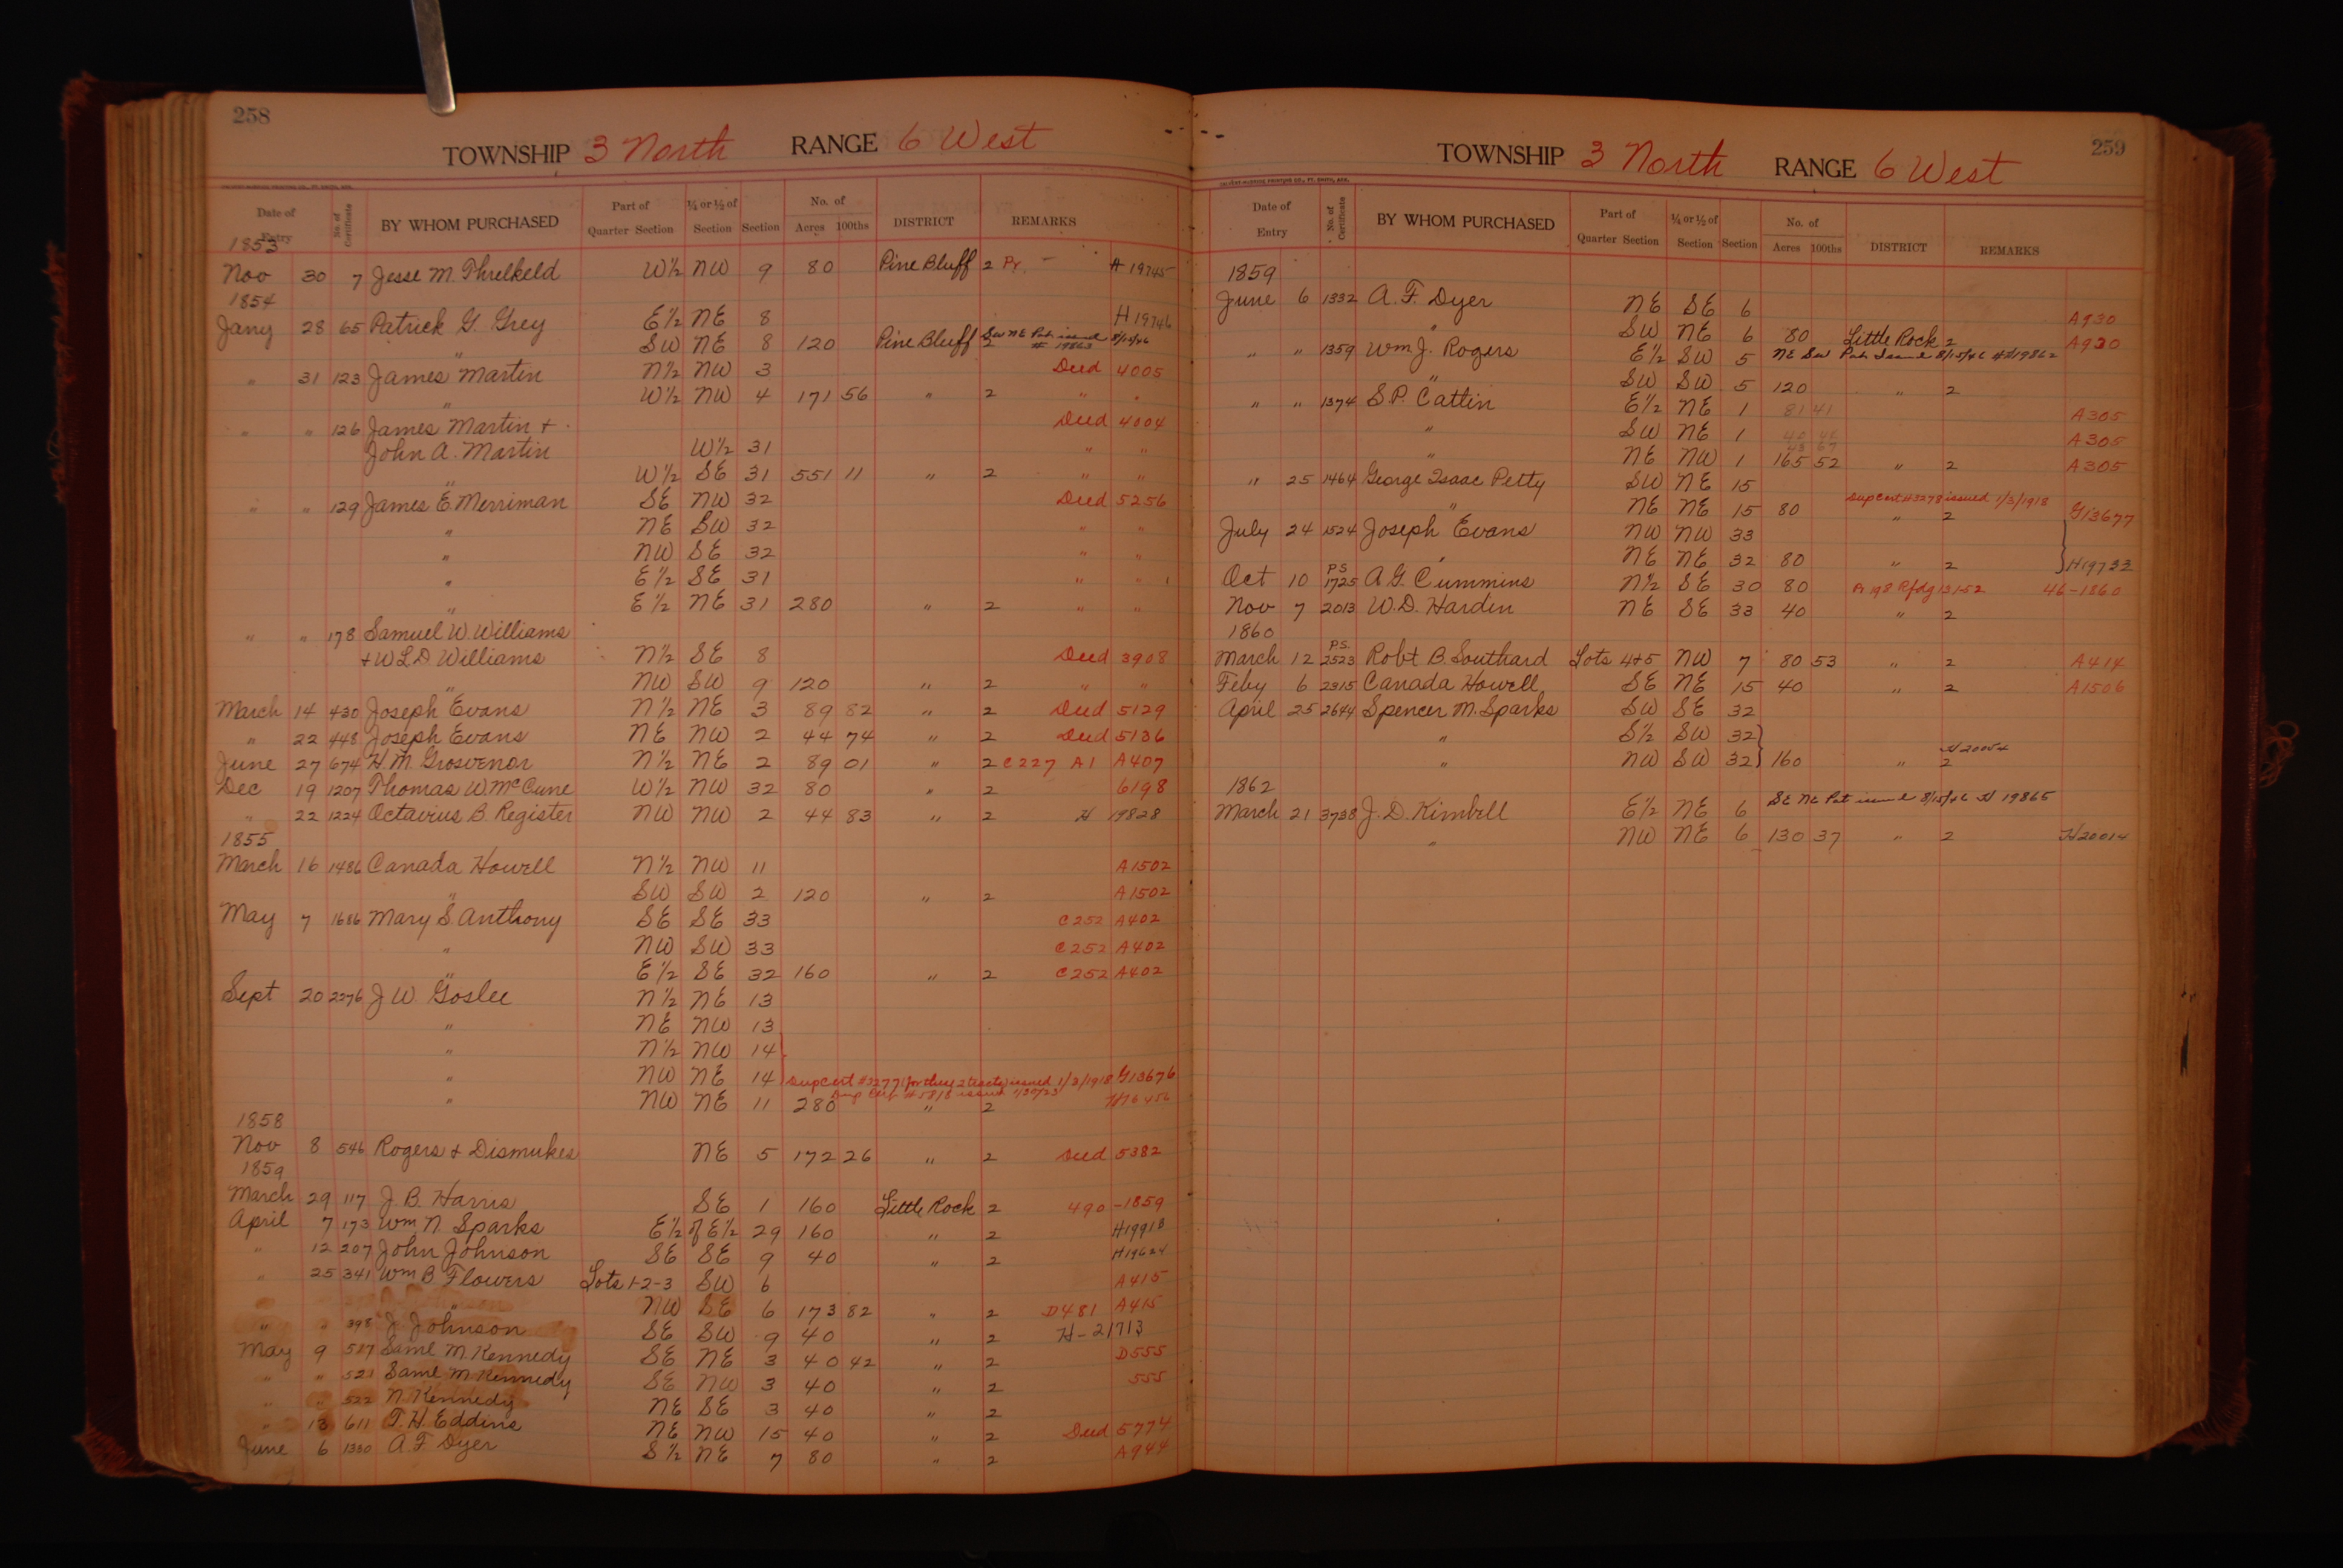 258
TOWNSHIP 3 North RANGE 6 West
Date of Entry No. of Certificate BY WHOM PURCHASED Part of Quarter Section ¼ or ½ of Section Section No. of Acres 100ths DISTRICT REMARKS
1853
Nov 30 7 Jesse M. Threlkeld W½ NW 9 80 Pine Bluff 2 Pr. H 19745
1854
Jany 28 65 Patrick G. Grey E½ NE 8 H 19746
" SW NE 8 120 Pine Bluff 2 SW NE Pat issued 8/15/46 # 19863
" 31 123 James Martin N½ NW 3 Deed 4005
" W½ NW 4 171 56 " 2 " "
" " 126 James Martin + Deed 4004
John A. Martin W½ 31 " "
" W½ SE 31 551 11 " 2 " "
" " 129 James E. Merriman SE NW 32 Deed 5256
" NE SW 32 " "
" NW SE 32 " "
" E½ SE 31 " "
" E½ NE 31 280 " 2 " "
" " 178 Samuel W. Williams
+ W L D Williams N½ SE 8 Deed 3908
" NW SW 9 120 " 2 " "
March 14 430 Joseph Evans N½ NE 3 89 82 " 2 Deed 5129
" 22 448 Joseph Evans NE NW 2 44 74 " 2 Deed 5136
June 27 674 H. M. Grosvenor N½ NE 2 89 01 " 2 C227 A1 A407
Dec 19 1207 Thomas W. McCune W½ NW 32 80 " 2 6198
" 22 1224 Octavius B Register NW NW 2 44 83 " 2 H 19828
1855
March 16 1486 Canada Howell N½ NW 11 A1502
" SW SW 2 120 " 2 A1502
May 7 1686 Mary S Anthony SE SE 33 C252 A402
" NW SW 33 C252 A402
" E½ SE 32 160 " 2 C252 A402
Sept 20 2276 J W Goslee N½ NE 13
" NE NW 13
" N½ NW 14
" NW NE 14 Dup Cert #3277 (for these 2 tracts) issued 1/3/1918 G13676
Dup Cert # 5818 issued 1/30/23
" NW NE 11 280 " 2 H16456
1858
Nov 8 546 Rogers + Dismukes NE 5 172 26 " 2 Deed 5382
1859
March 29 117 J. B. Harris SE 1 160 Little Rock 2 490-1859
April 7 173 Wm N. Sparks E½ of E½ 29 160 " 2 H19918
" 12 207 John Johnson SE SE 9 40 " 2 H19624
" 25 341 Wm B Flowers Lots 1-2-3 SW 6 A415
" NW SE 6 173 82 " 2 D481 A415
" " 398 J. Johnson SE SW 9 40 " 2 H-21713
May 9 517 Saml M. Kennedy SE NE 3 40 42 " 2 D555
" " 521 Saml M Kennedy SE NW 3 40 " 2 555
" " 522 N. Kennedy NE SE 3 40 " 2
" 13 611 T. H. Eddins NE NW 15 40 " 2 Deed 5774
June 6 1330 A. F. Dyer S½ NE 7 80 " 2 A944
259
TOWNSHIP 3 North RANGE 6 West
Date of Entry No. of Certificate BY WHOM PURCHASED Part of Quarter Section ¼ or ½ of Section Section No. of Acres 100ths DISTRICT REMARKS
1859
June 6 1332 A. F. Dyer NE SE 6 A930
" SW NE 6 80 Little Rock 2 A930
" " 1359 Wm J. Rogers E½ SW 5 NE SW Pat Issued 8/15/46 #H19862
" SW SW 5 120 " 2
" " 1374 S. P. Catlin E½ NE 1 81 41 A305
" SW NE 1 A305
" NE NW 1 165 52 " 2 A305
" 25 1464 George Isaac Petty SW NE 15
" NE NE 15 80 Dup Cert #3278 issued 1/3/1918 " 2 G13677
July 24 1524 Joseph Evans NW NW 33
" NE NE 32 80 " 2 H19733
Oct 10 P.S. 1725 A. G. Cummins N½ SE 30 80 A 198 Rfdg 13152 46-1860
Nov 7 2013 W. D. Hardin NE SE 33 40 " 2
1860
March 12 P.S. 2523 Robt B. Southard Lots 4+5 NW 7 80 53 " 2 A414
Feby 6 2315 Canada Howell SE NE 15 40 " 2 A1506
April 25 2644 Spencer M. Sparks SW SE 32
" S½ SW 32
" NW SW 32 160 " 2 H20054
1862
March 21 3738 J. D. Kimbell E½ NE 6 SE NE Pat issued 8/15/46 H 19865
" NW NE 6 130 37 " 2 H20014